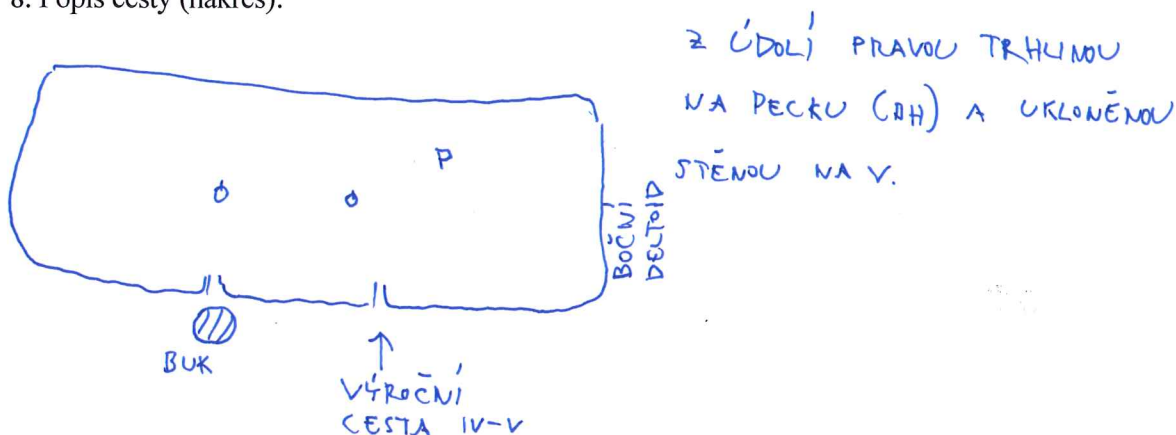 8. Popis cesty (nákres):
Z ÚDOLÍ PRAVOU TRHLINOU
NA PECKU (DH) A UKLONĚNOU
STĚNOU NA V.
P
BOČNÍ
DELTOID
BUK
VÝROČNÍ
CESTA IV-V